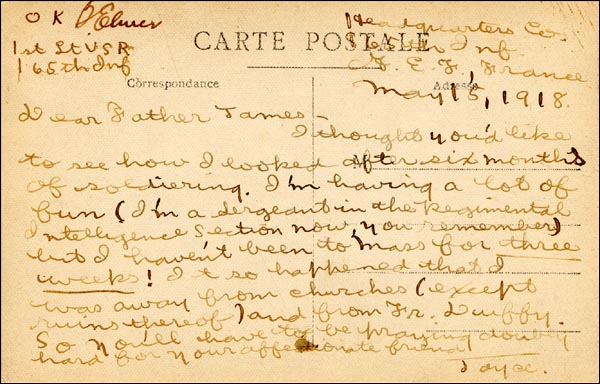 O K Elmer
1st Lt USR
165th Inf
Headquarters Co.
165th Inf
A. E. F. France
CARTE POSTALE
Correspondance
Adresse
May 15, 1918.
Dear Father James –
I thought you'd like
to see how I looked after six months
of soldiering. I'm having a lot of
fun (I'm a sergeant in the Regimental
Intelligence Section now, you remember)
but I haven't been to Mass for three
weeks! It so happened that I
was away from churches (except
ruins thereof) and from Fr. Duffy.
So you'll have to be praying doubly
hard for your affectionate friend
Joyce.